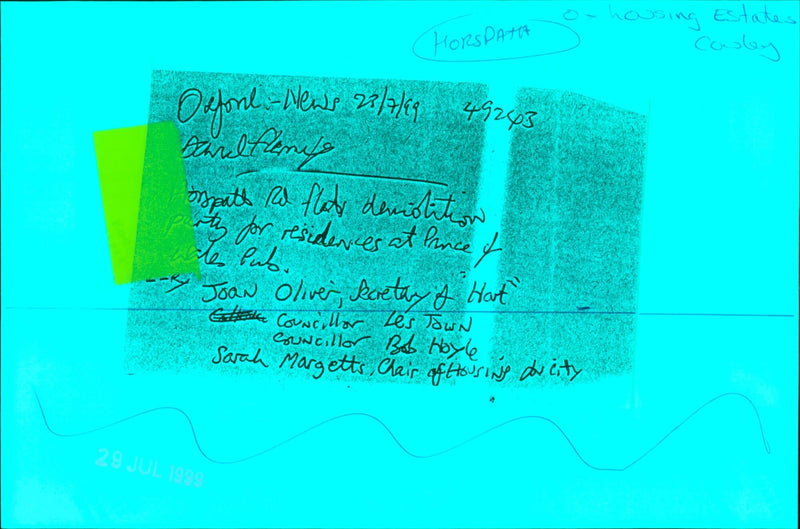 O - housing Estates
Cowley
HORSPATH
Oxford:- News 23/7/99 49243
Horspath Rd flats demolition
party for residences at Prince of
Wales Pub.
Joan Oliver, Secretary of "Hart"
Councillor Les Town
Councillor Bob Hoyle
Sarah Margetts, Chair of Housing for city
29 JUL 1999